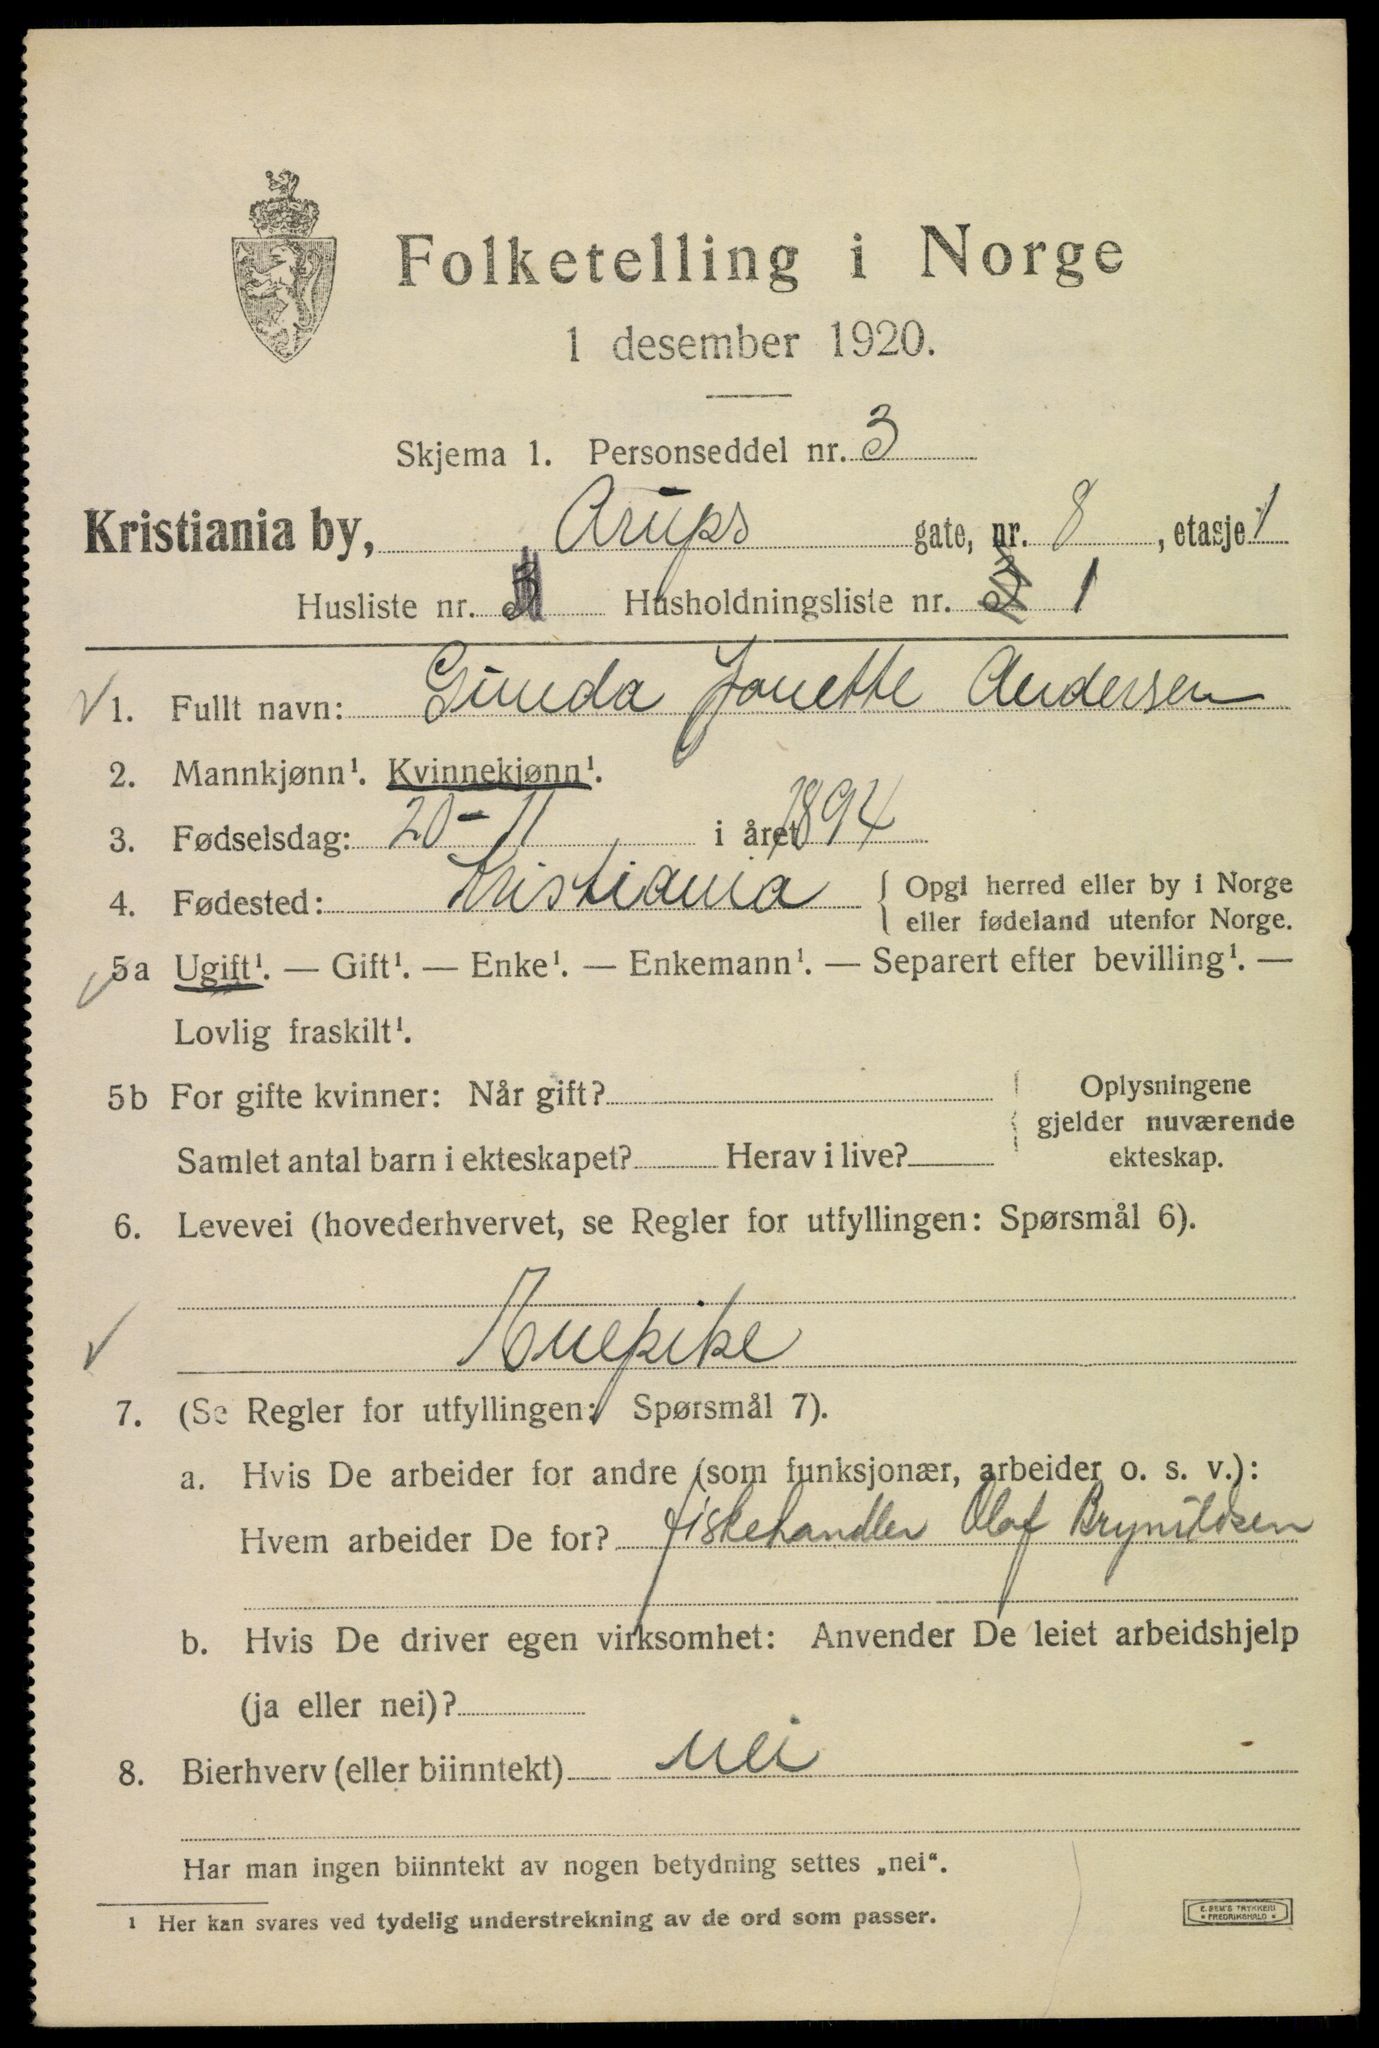 Folketelling i Norge
1 desember 1920.
Skjema 1. Personseddel nr. 3
Kristiania by, Arups gate, nr. 8, etasje 1
Husliste nr. Husholdningsliste nr. 1
1. Fullt navn: Gunda Jonette Andersen
2. Mannkjønn¹. Kvinnekjønn¹.
3. Fødselsdag: 20-11 i året 1894
4. Fødested: Kristiania { Opgi herred eller by i Norge
eller fødeland utenfor Norge.
5a Ugift¹. — Gift¹. — Enke¹. — Enkemann¹. — Separert efter bevilling¹. —
Lovlig fraskilt¹.
5b For gifte kvinner: Når gift? Oplysningene
gjelder nuværende
Samlet antal barn i ekteskapet? Herav i live? ekteskap.
6. Levevei (hovederhvervet, se Regler for utfyllingen: Spørsmål 6).
7. (Se Regler for utfyllingen: Spørsmål 7).
a. Hvis De arbeider for andre (som funksjonær, arbeider o. s. v.):
Hvem arbeider De for? fiskehandler Olaf Brynildsen
b. Hvis De driver egen virksomhet: Anvender De leiet arbeidshjelp
(ja eller nei)?
8. Bierhverv (eller biinntekt) nei
Har man ingen biinntekt av nogen betydning settes „nei“.
¹ Her kan svares ved tydelig understrekning av de ord som passer.
E. SEM'S TRYKKERI
FREDRIKSHALD